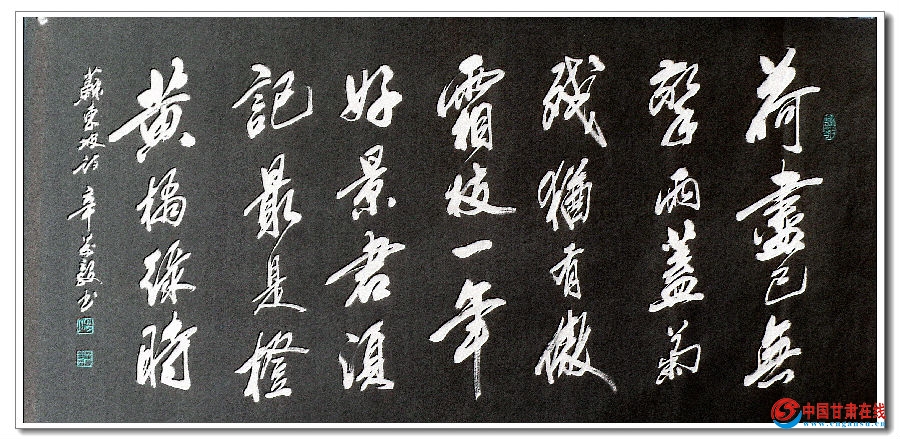 荷盡已無
擎雨蓋菊
殘猶有傲
霜枝一年
好景君須
記最是橙
黄橘緑時
蘇東坡詩 辛毅书
中国甘肃在线
www.cngansu.cn